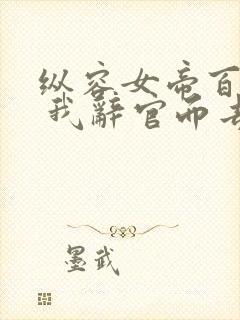 纵容女帝百
我辞官而去
墨武